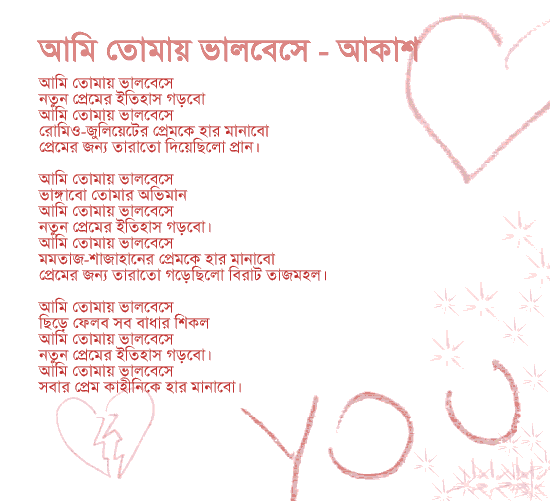 আমি তোমায় ভালবেসে - আকাশ
আমি তোমায় ভালবেসে
নতুন প্রেমের ইতিহাস গড়বো
আমি তোমায় ভালবেসে
রোমিও-জুলিয়েটের প্রেমকে হার মানাবো
প্রেমের জন্য তারাতো দিয়েছিলো প্রান।
আমি তোমায় ভালবেসে
ভাঙ্গাবো তোমার অভিমান
আমি তোমায় ভালবেসে
নতুন প্রেমের ইতিহাস গড়বো।
আমি তোমায় ভালবেসে
মমতাজ-শাজাহানের প্রেমকে হার মানাবো
প্রেমের জন্য তারাতো গড়েছিলো বিরাট তাজমহল।
আমি তোমায় ভালবেসে
ছিড়ে ফেলব সব বাধার শিকল
আমি তোমায় ভালবেসে
নতুন প্রেমের ইতিহাস গড়বো।
আমি তোমায় ভালবেসে
সবার প্রেম কাহীনিকে হার মানাবো।
YOU